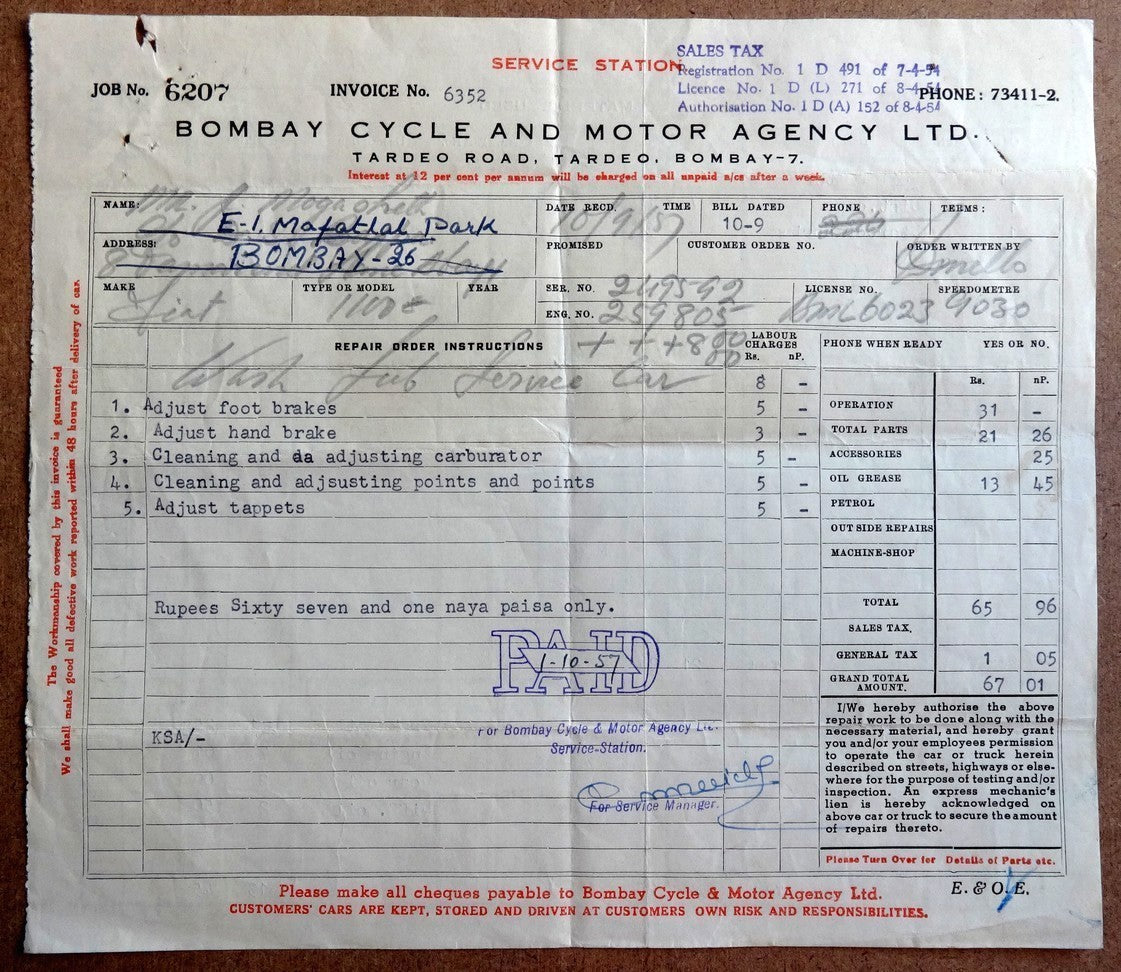 SERVICE STATION
SALES TAX
Registration No. 1 D 491 of 7-4-54
Licence No. 1 D (L) 271 of 8-4-54
Authorisation No. 1 D (A) 152 of 8-4-54
JOB No. 6207 INVOICE No. 6352 PHONE: 73411-2.
BOMBAY CYCLE AND MOTOR AGENCY LTD.
TARDEO ROAD, TARDEO, BOMBAY-7.
Interest at 12 per cent per annum will be charged on all unpaid a/cs after a week.
NAME: E-1, Mafatlal Park DATE RECD. 10/9/57 TIME BILL DATED 10-9 PHONE TERMS:
ADDRESS: BOMBAY-26 PROMISED CUSTOMER ORDER NO. ORDER WRITTEN BY
MAKE Fiat TYPE OR MODEL 1100E YEAR SER. NO. 249592 LICENSE NO. 6023 SPEEDOMETRE 9030
ENG. NO. 259805
REPAIR ORDER INSTRUCTIONS LABOUR CHARGES Rs. nP. PHONE WHEN READY YES OR NO.
Wash Lub Service Car 8 - Rs. nP.
1. Adjust foot brakes 5 - OPERATION 31 -
2. Adjust hand brake 3 - TOTAL PARTS 21 26
3. Cleaning and da adjusting carburator 5 - ACCESSORIES 25
4. Cleaning and adjsusting points and points 5 - OIL GREASE 13 45
5. Adjust tappets 5 - PETROL
OUT SIDE REPAIRS
MACHINE-SHOP
Rupees Sixty seven and one naya paisa only. TOTAL 65 96
SALES TAX.
PAID
1-10-57
GENERAL TAX 1 05
GRAND TOTAL AMOUNT. 67 01
KSA/-
For Bombay Cycle & Motor Agency Ltd.
Service-Station.
For Service Manager.
I/We hereby authorise the above
repair work to be done along with the
necessary material, and hereby grant
you and/or your employees permission
to operate the car or truck herein
described on streets, highways or else-
where for the purpose of testing and/or
inspection. An express mechanic's
lien is hereby acknowledged on
above car or truck to secure the amount
of repairs thereto.
Please Turn Over for Details of Parts etc.
E. & O. E.
Please make all cheques payable to Bombay Cycle & Motor Agency Ltd.
CUSTOMERS' CARS ARE KEPT, STORED AND DRIVEN AT CUSTOMERS OWN RISK AND RESPONSIBILITIES.
The Workmanship covered by this invoice is guaranteed
We shall make good all defective work reported within 48 hours after delivery of car.